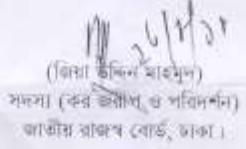 (জিয়া উদ্দিন মাহমুদ)
সদস্য (কর জরীপ ও পরিদর্শন)
জাতীয় রাজস্ব বোর্ড, ঢাকা।